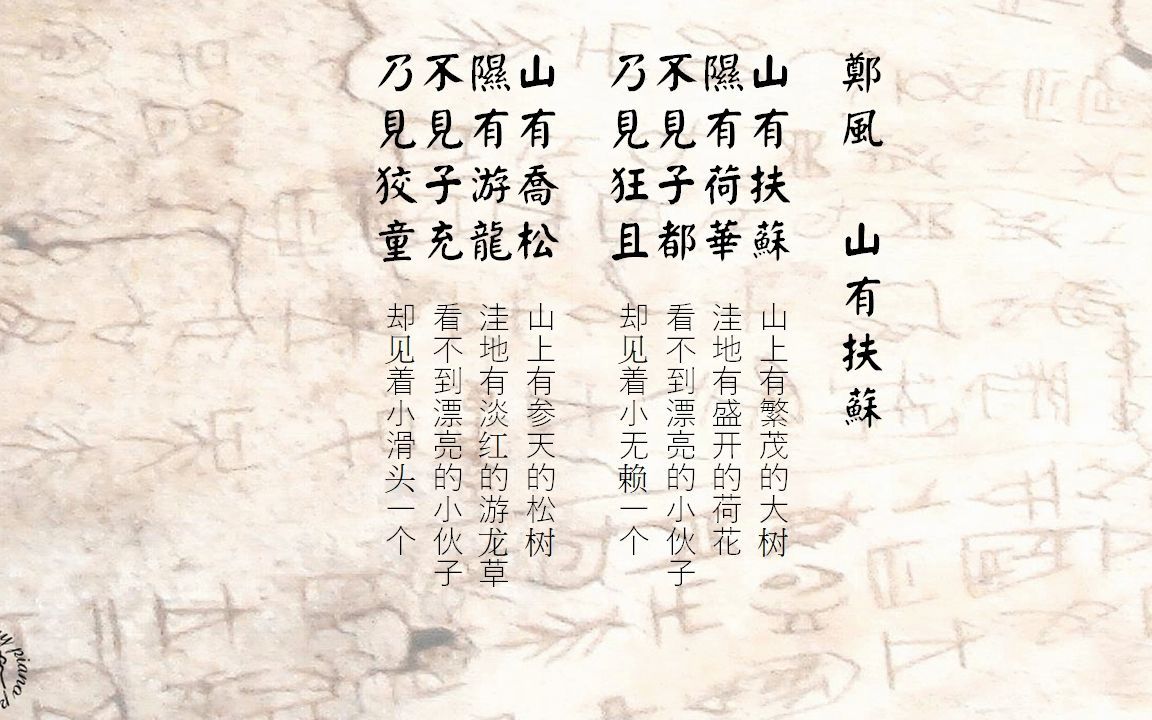 鄭風 山有扶蘇
山有扶蘇
隰有荷華
不見子都
乃見狂且
山上有繁茂的大树
洼地有盛开的荷花
看不到漂亮的小伙子
却见着小无赖一个
山有喬松
隰有游龍
不見子充
乃見狡童
山上有参天的松树
洼地有淡红的游龙草
看不到漂亮的小伙子
却见着小滑头一个
piano